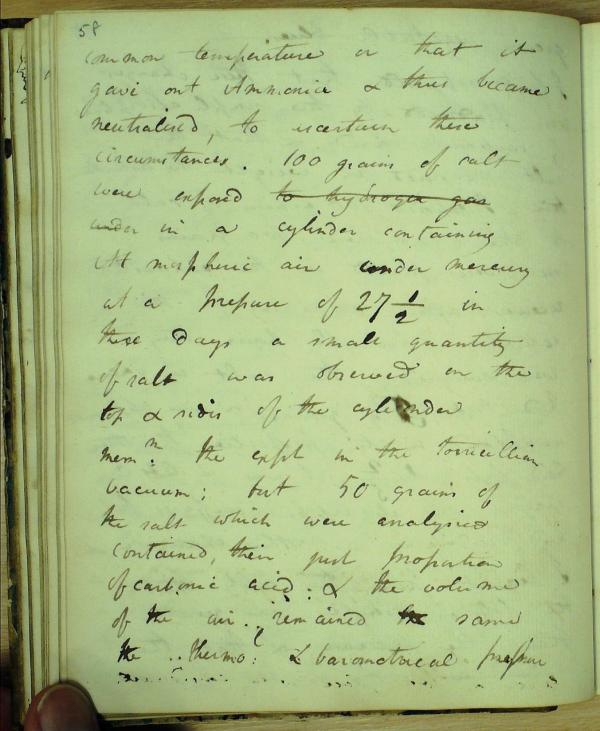 58
common temperature or that it
gave out Ammonia & thus became
neutralised, to ascertain these
circumstances. 100 grains of salt
were exposed to hydrogen gas
under in a cylinder containing
At mospheric air under mercury
at a pressure of 27 1/2 in
these days a small quantity
of salt was observed on the
top & sides of the cylender
mem^m: the expt in the torricellian
vacuum; but 50 grains of
the salt which were analysied
contained, their just proportion
of carbonic acid: & the volume
of the air remained the same
the thermo: & barometrical pressure